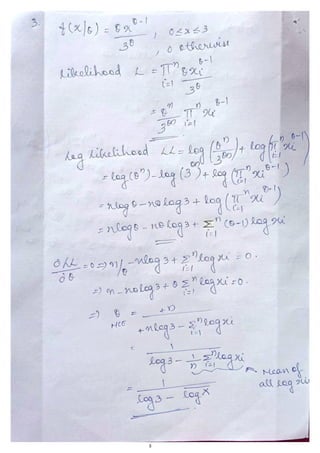 3. f(x|θ) = θx^(θ-1) / 3^θ , 0≤x≤3
, 0 otherwise
Likelihood L = ∏^n_(i=1) θxi^(θ-1) / 3^θ
= θ^n / 3^(θn) ∏^n_(i=1) xi^(θ-1)
Log Likelihood LL = log (θ^n / 3^(θn)) + log (∏^n_(i=1) xi^(θ-1))
= log(θ^n) - log(3^(θn)) + log (∏^n_(i=1) xi^(θ-1))
= nlogθ - nθlog3 + log (∏^n_(i=1) xi^(θ-1))
= nlogθ - nθlog3 + Σ^n_(i=1) (θ-1) log xi
∂LL/∂θ = 0 ⇒ n/θ - nlog3 + Σ^n_(i=1) log xi = 0.
⇒ n - nθlog3 + θ Σ^n_(i=1) log xi = 0.
⇒ θ_MLE = +n / +nlog3 - Σ^n_(i=1) log xi
= 1 / log3 - 1/n Σ^n_(i=1) log xi
Mean of
all log xi
= 1 / log3 - log X